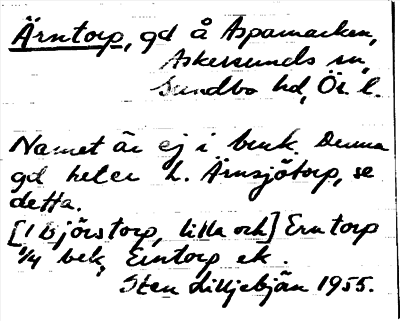 Ärntorp, gd å Aspamarken,
Askersunds sn,
Sundbo hd, Ör. l.
Namet är ej i bruk. Denna
gd heter L. Ärnsjötorp, se
detta.
[1 Björstorp, lilla och] Ern torp
1/4 bek, Erntorp ek.
Sten Lilljebjän 1955.